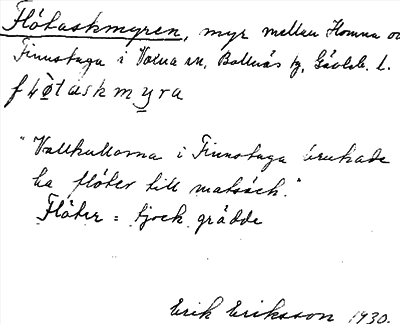 Flötaskmyren, myr mellan Homna o
Finnstuga i Voxna sn, Bollnäs tg, Gävleb. l.
flö̀taskmyra
"Vallkullorna i Finnstuga brukade
ha flöter till matsäck."
Flöter = tjock grädde
Erik Eriksson 1930.